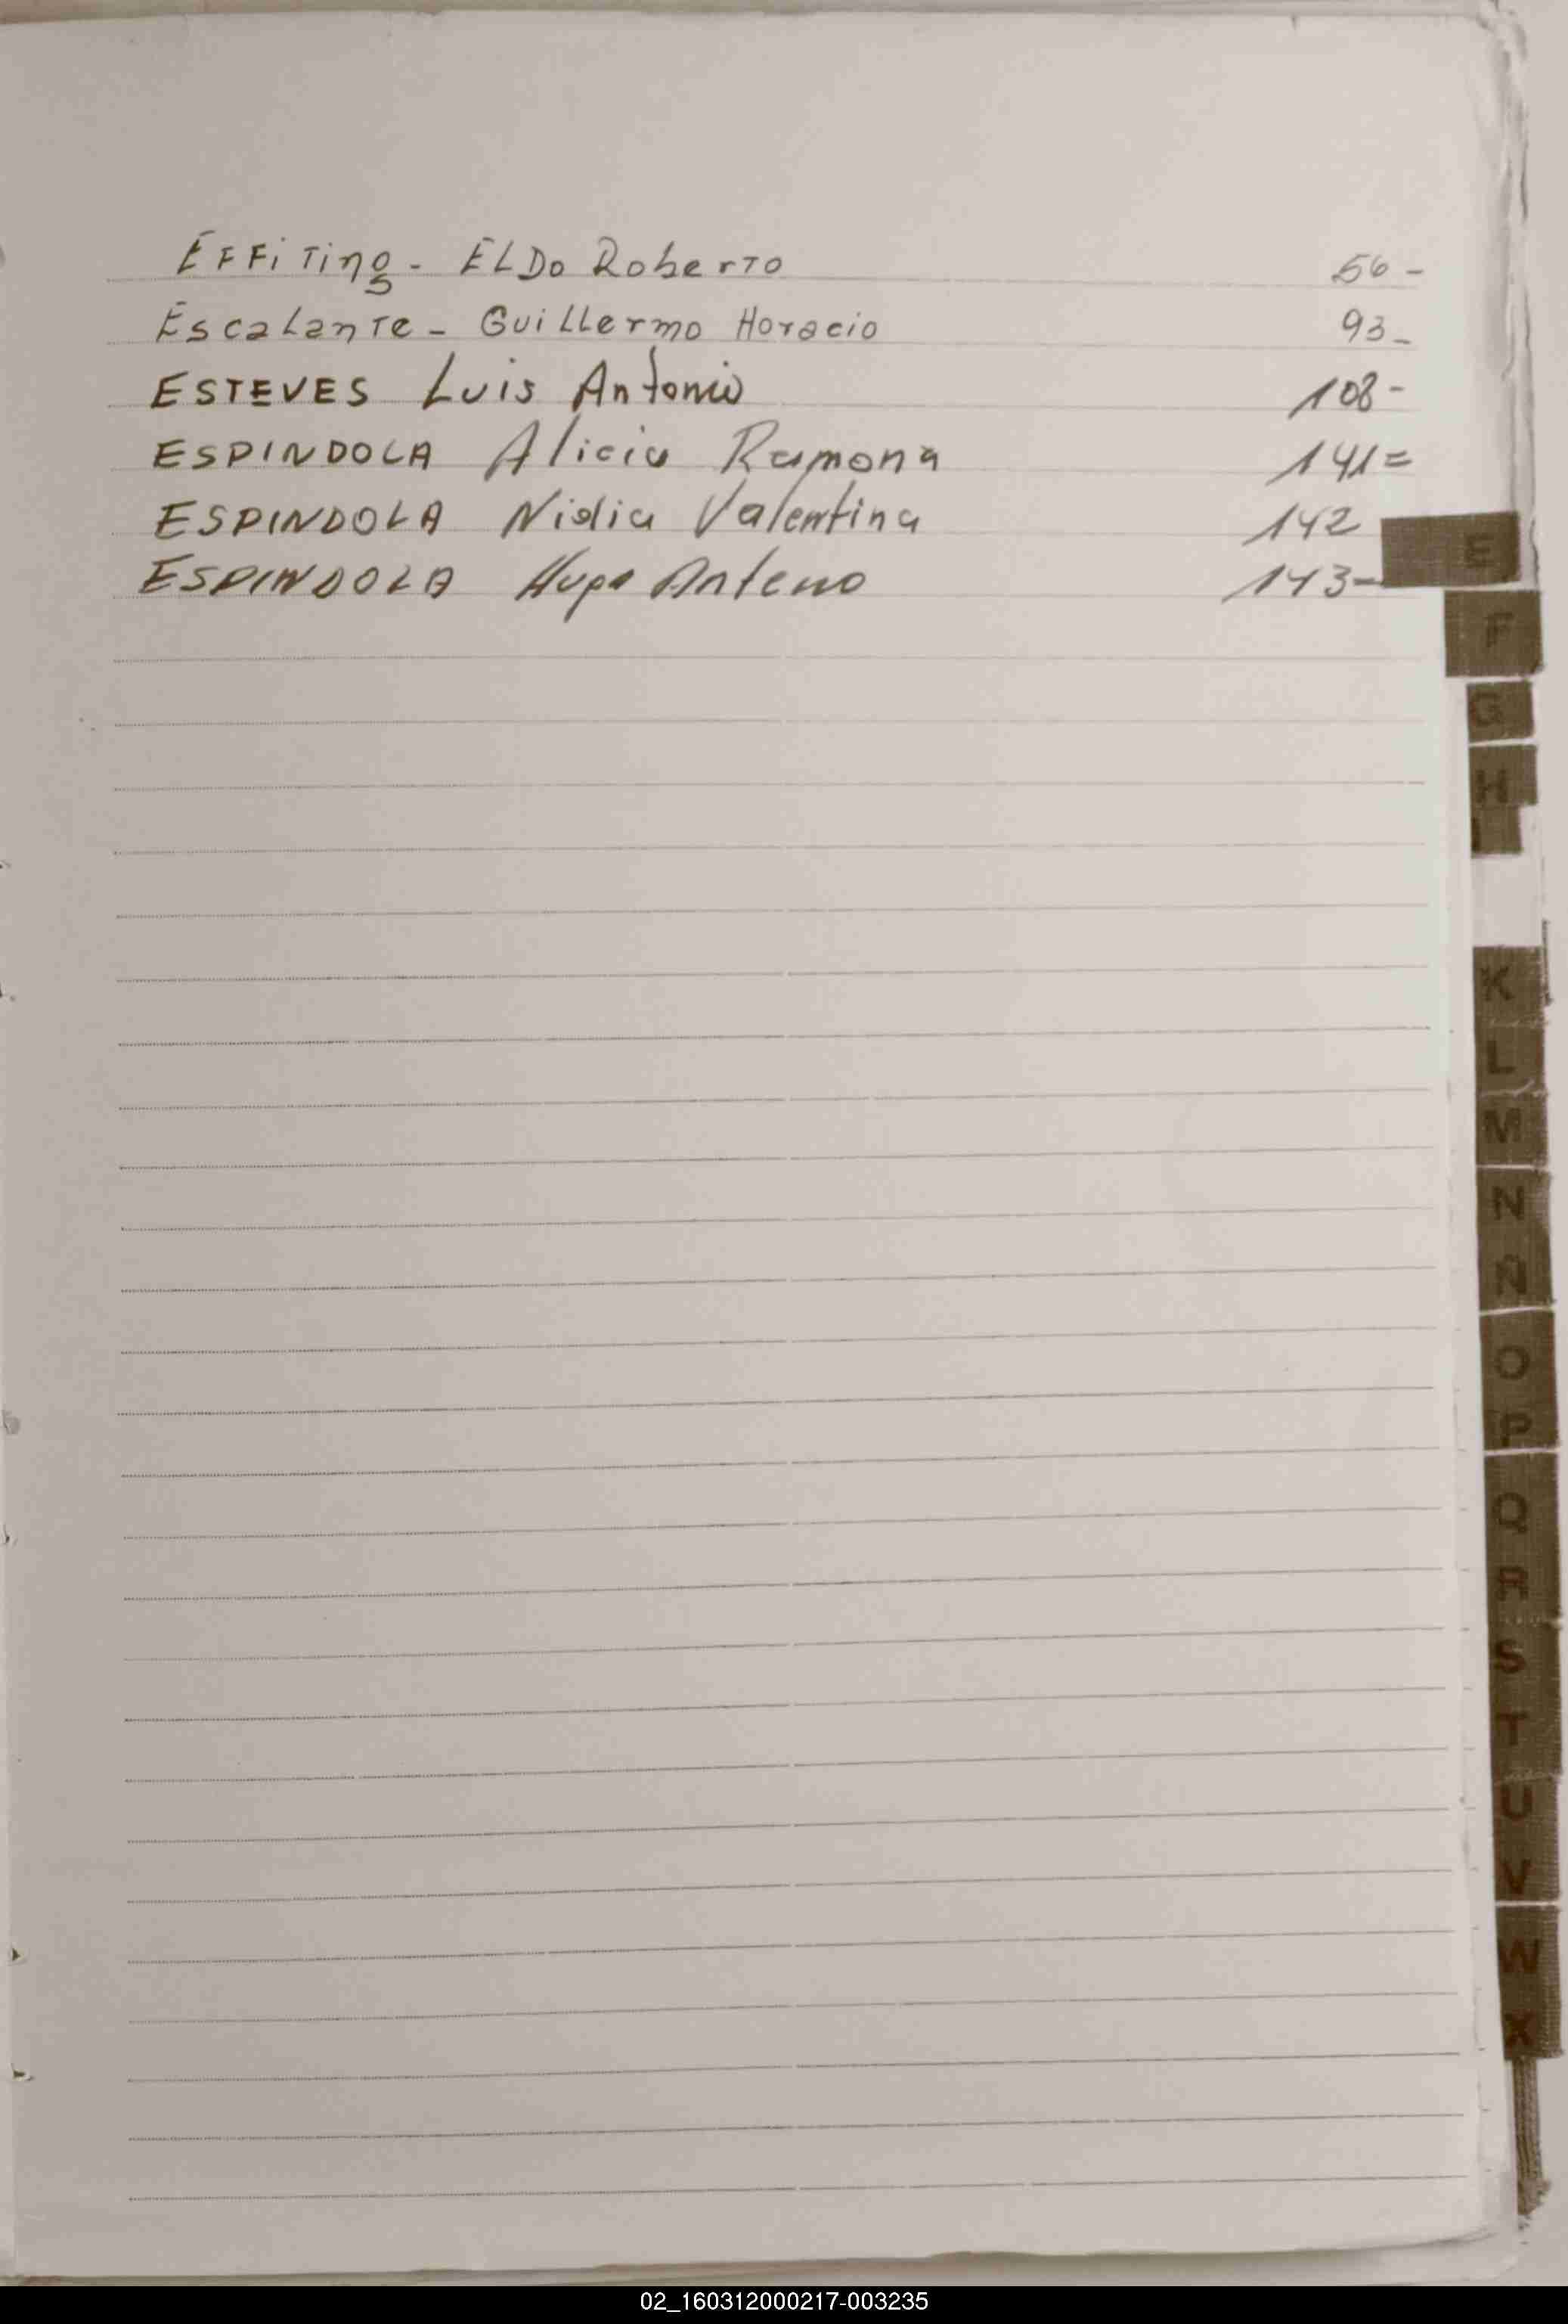 Effiting - ELDo Roberto 56 -
Escalante - Guillermo Horacio 93 -
ESTEVES Luis Antonio 108 -
ESPINDOLA Alicia Ramona 141 =
ESPINDOLA Nidia Valentina 142
ESPINDOLA Hugo 143 -
E
F
G
H
I
K
L
M
N
Ñ
O
P
Q
R
S
T
U
V
W
X
02_160312000217-003235